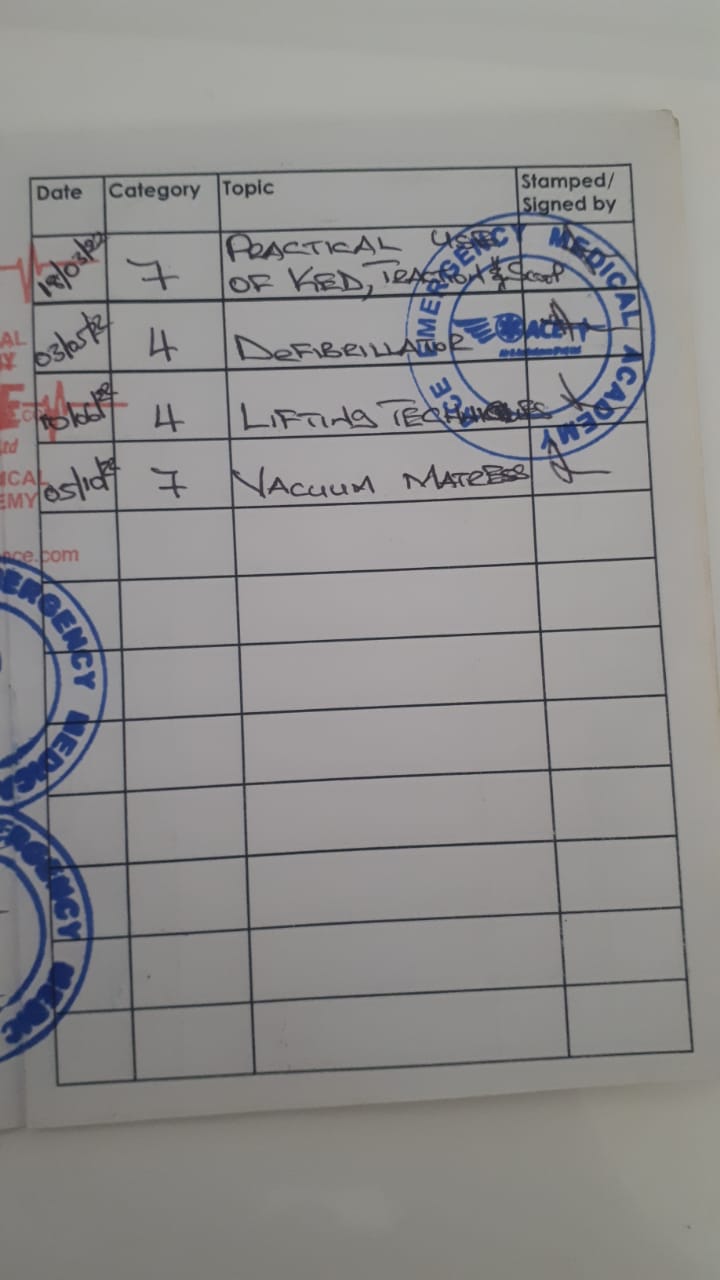 Date Category Topic Stamped/
Signed by
18/03/22 7 PRACTICAL USE
OF KED, TRACTION & SCOOP
03/05/22 4 DEFIBRILLATOR
4 LIFTING TECHNIQUES
05/10/22 7 VACUUM MATRESS
ACE EMERGENCY MEDICAL ACADEMY
ACE
AL
Ltd
ICAL
EMY
ace.com
ERGENCY MEDICA
ERGENCY MEDIC